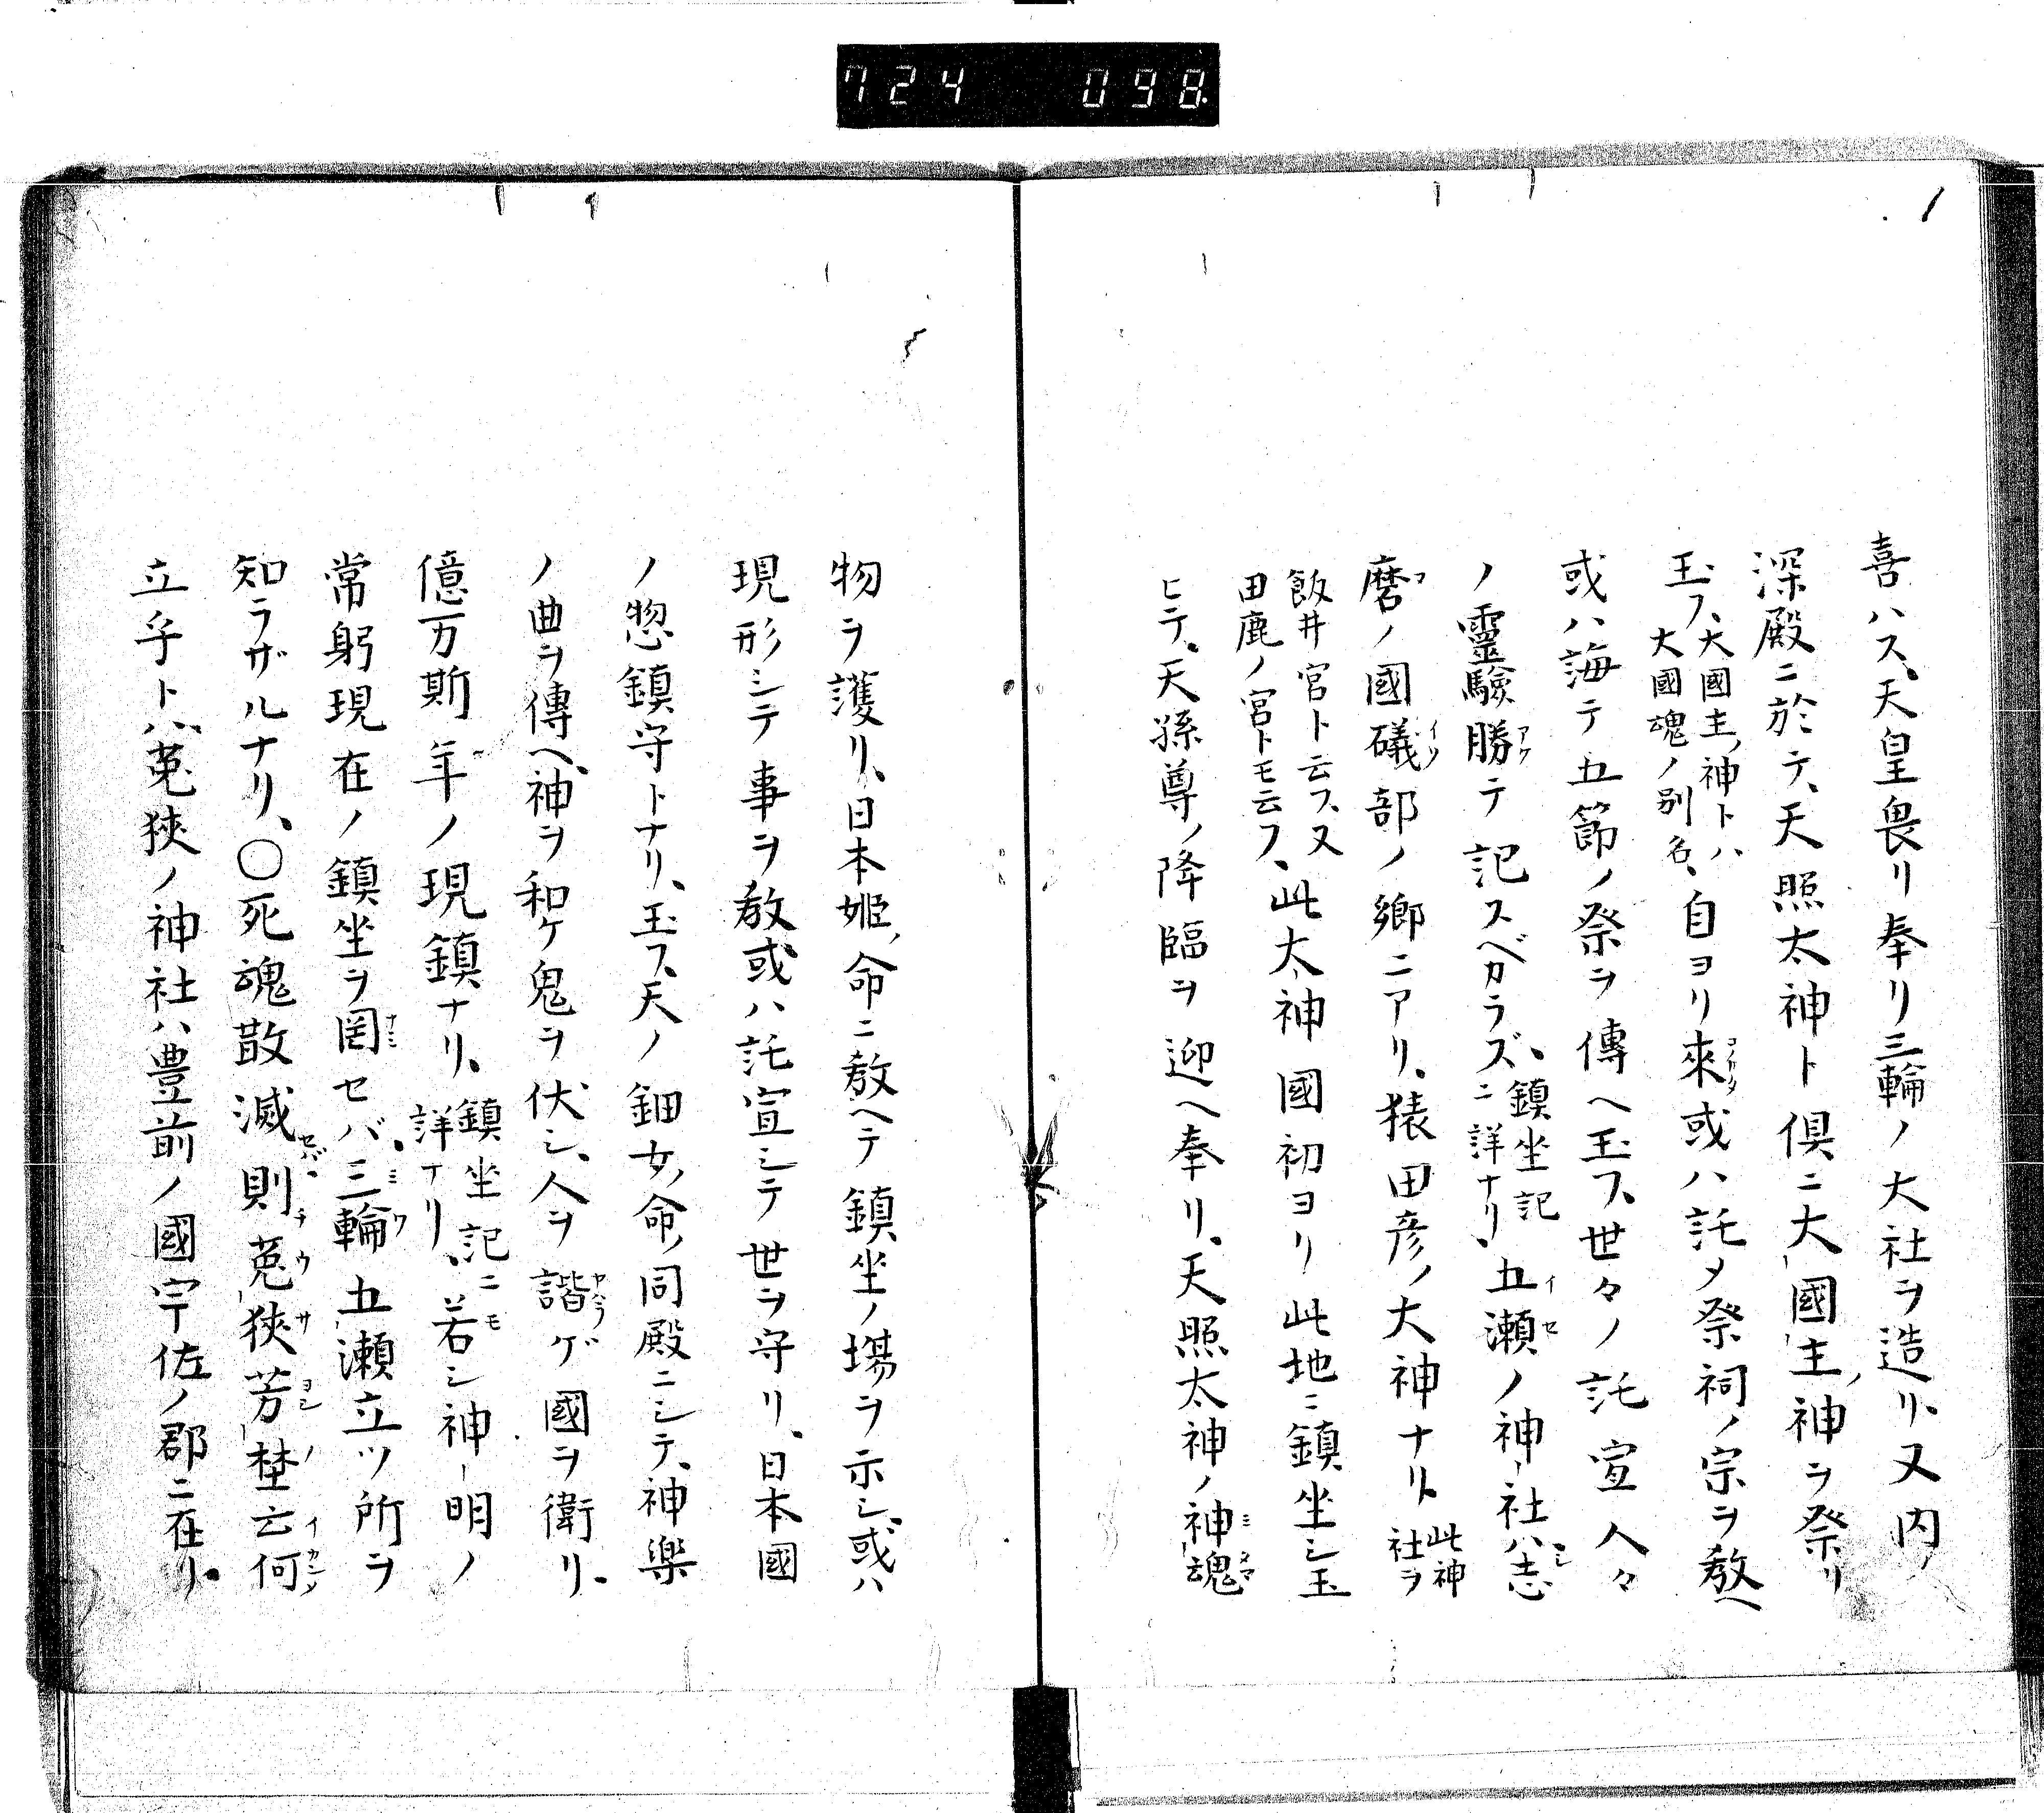 724 098
喜ハス、天皇畏リ奉リ三輪ノ大社ヲ造リ、又内ノ
深殿ニ於テ、天照太神ト倶ニ大國主ノ神ヲ祭リ
玉フ、大國主ノ神トハ大國魂ノ別名、自ヨリ來或ハ託メ祭祠ノ宗ヲ教ヘ
或ハ海テ五節ノ祭ヲ傳ヘ玉フ、世々ノ託宣人々
ノ靈驗勝テ記スベカラズ、鎮坐記ニ詳ナリ、五瀬ノ神社ハ志
磨ノ國礒部ノ郷ニアリ、猿田彦ノ大神ナリト此神社ヲ
飯井宮ト云フ、又田鹿ノ宮トモ云フ、此太神國初ヨリ此地ニ鎮坐シ玉
ヒテ、天孫尊ノ降臨ヲ迎ヘ奉リ、天照太神ノ神魂
物ヲ護リ、日本姫ノ命ニ教ヘテ鎮坐ノ場ヲ示シ、或ハ
現形シテ事ヲ教或ハ託宣シテ世ヲ守リ、日本國
ノ惣鎮守トナリ、玉フ、天ノ鈿女ノ命ノ同殿ニシテ、神樂
ノ曲ヲ傳ヘ、神ヲ和ケ鬼ヲ伏シ、人ヲ諧ゲ國ヲ衛リ、
億万斯年ノ現鎮ナリ、鎮坐記ニモ詳ナリ、若シ神明ノ
常躬現在ノ鎮坐ヲ罔セバ、三輪五瀬立ツ所ヲ
知ラザルナリ、〇死魂散滅則菟狹芳埜云何
立乎トハ、菟狹ノ神社ハ豊前ノ國宇佐ノ郡ニ在リ、